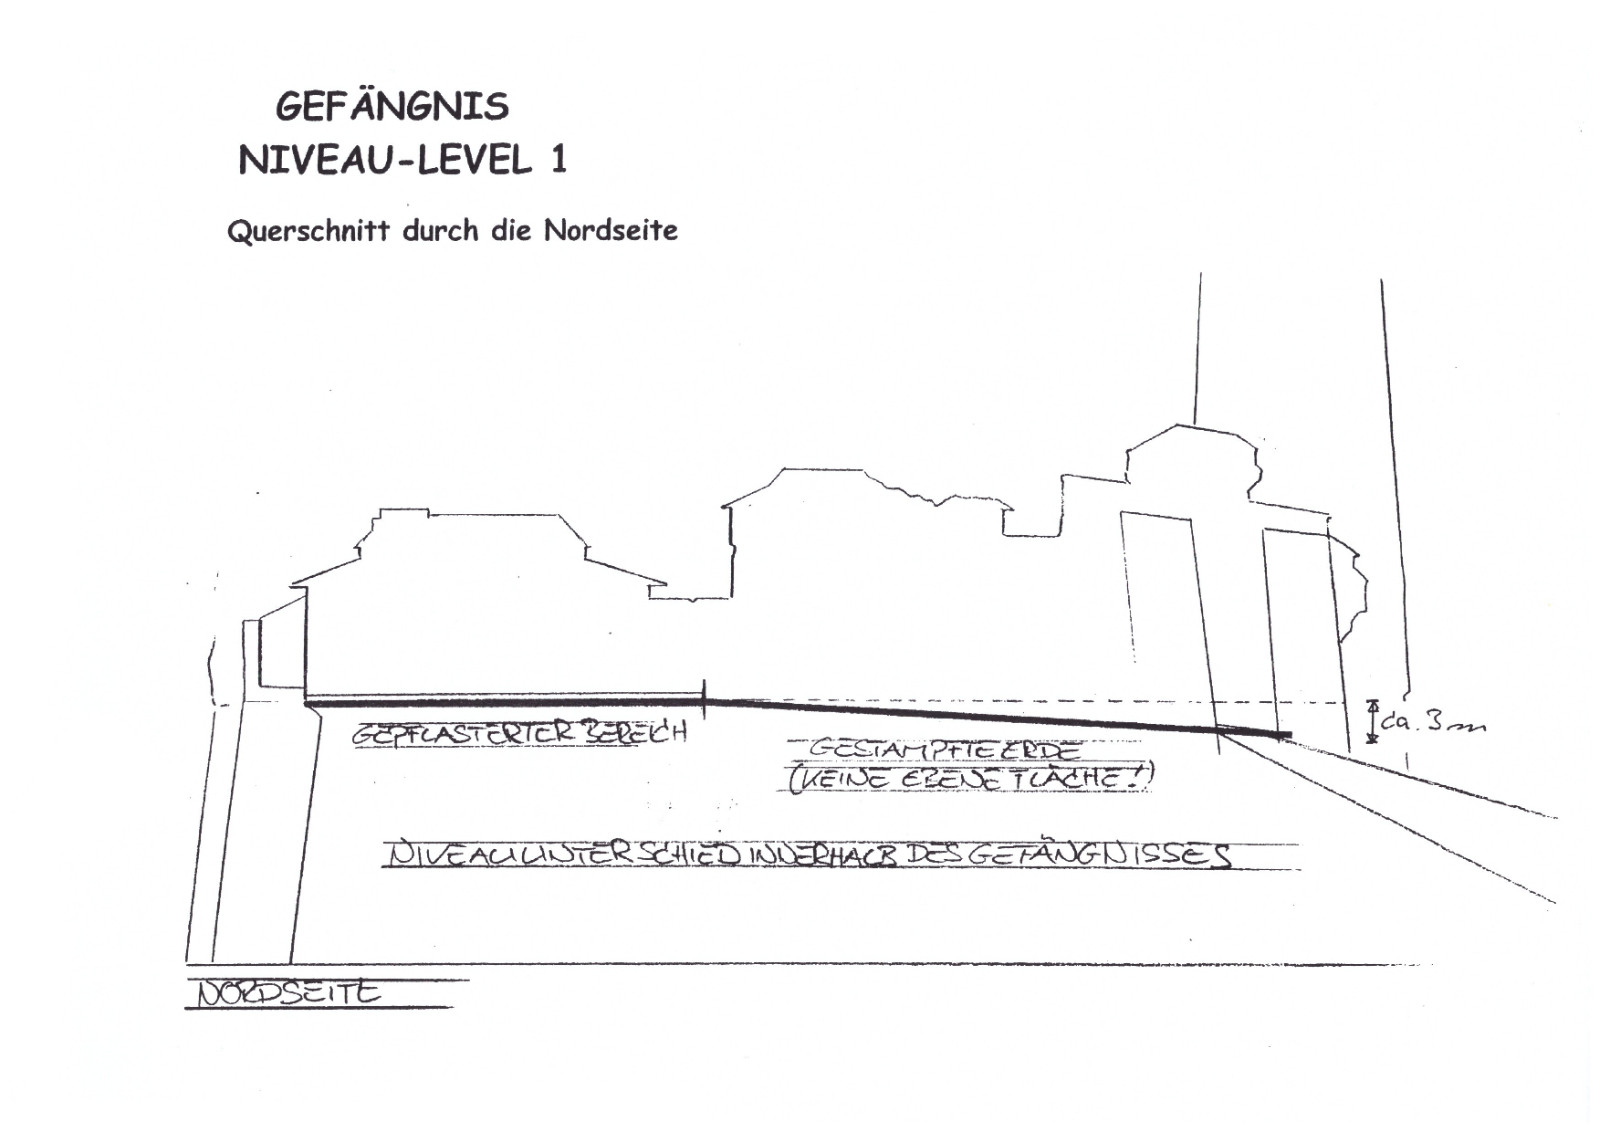 GEFÄNGNIS
NIVEAU-LEVEL 1
Querschnitt durch die Nordseite
ca. 3 m
GEPFLASTERTER BEREICH
GESTAMPFTE ERDE
(KEINE EBENE FLÄCHE!)
NIVEAUUNTERSCHIED INNERHALB DES GEFÄNGNISSES
NORDSEITE